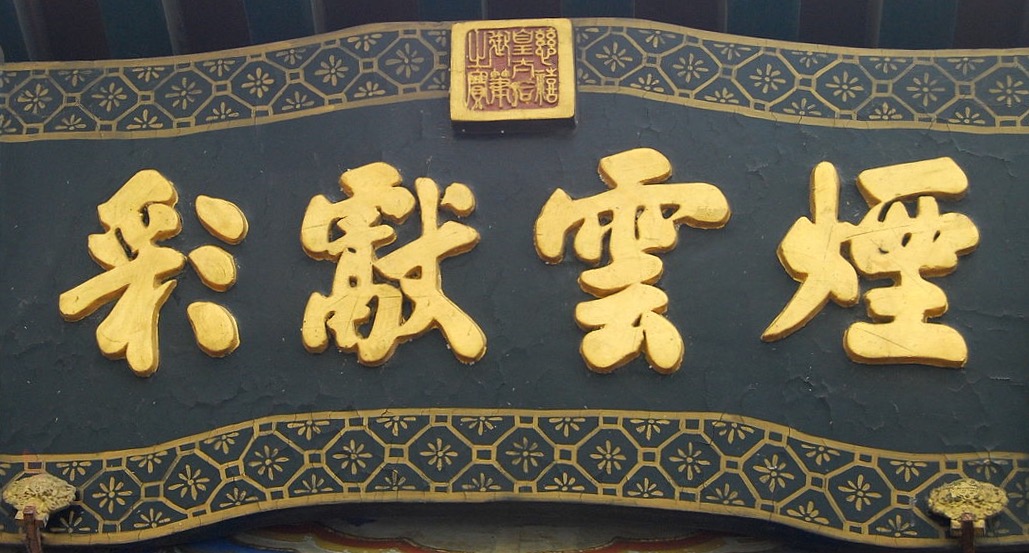 慈禧皇太后御筆之寶
煙雲獻彩